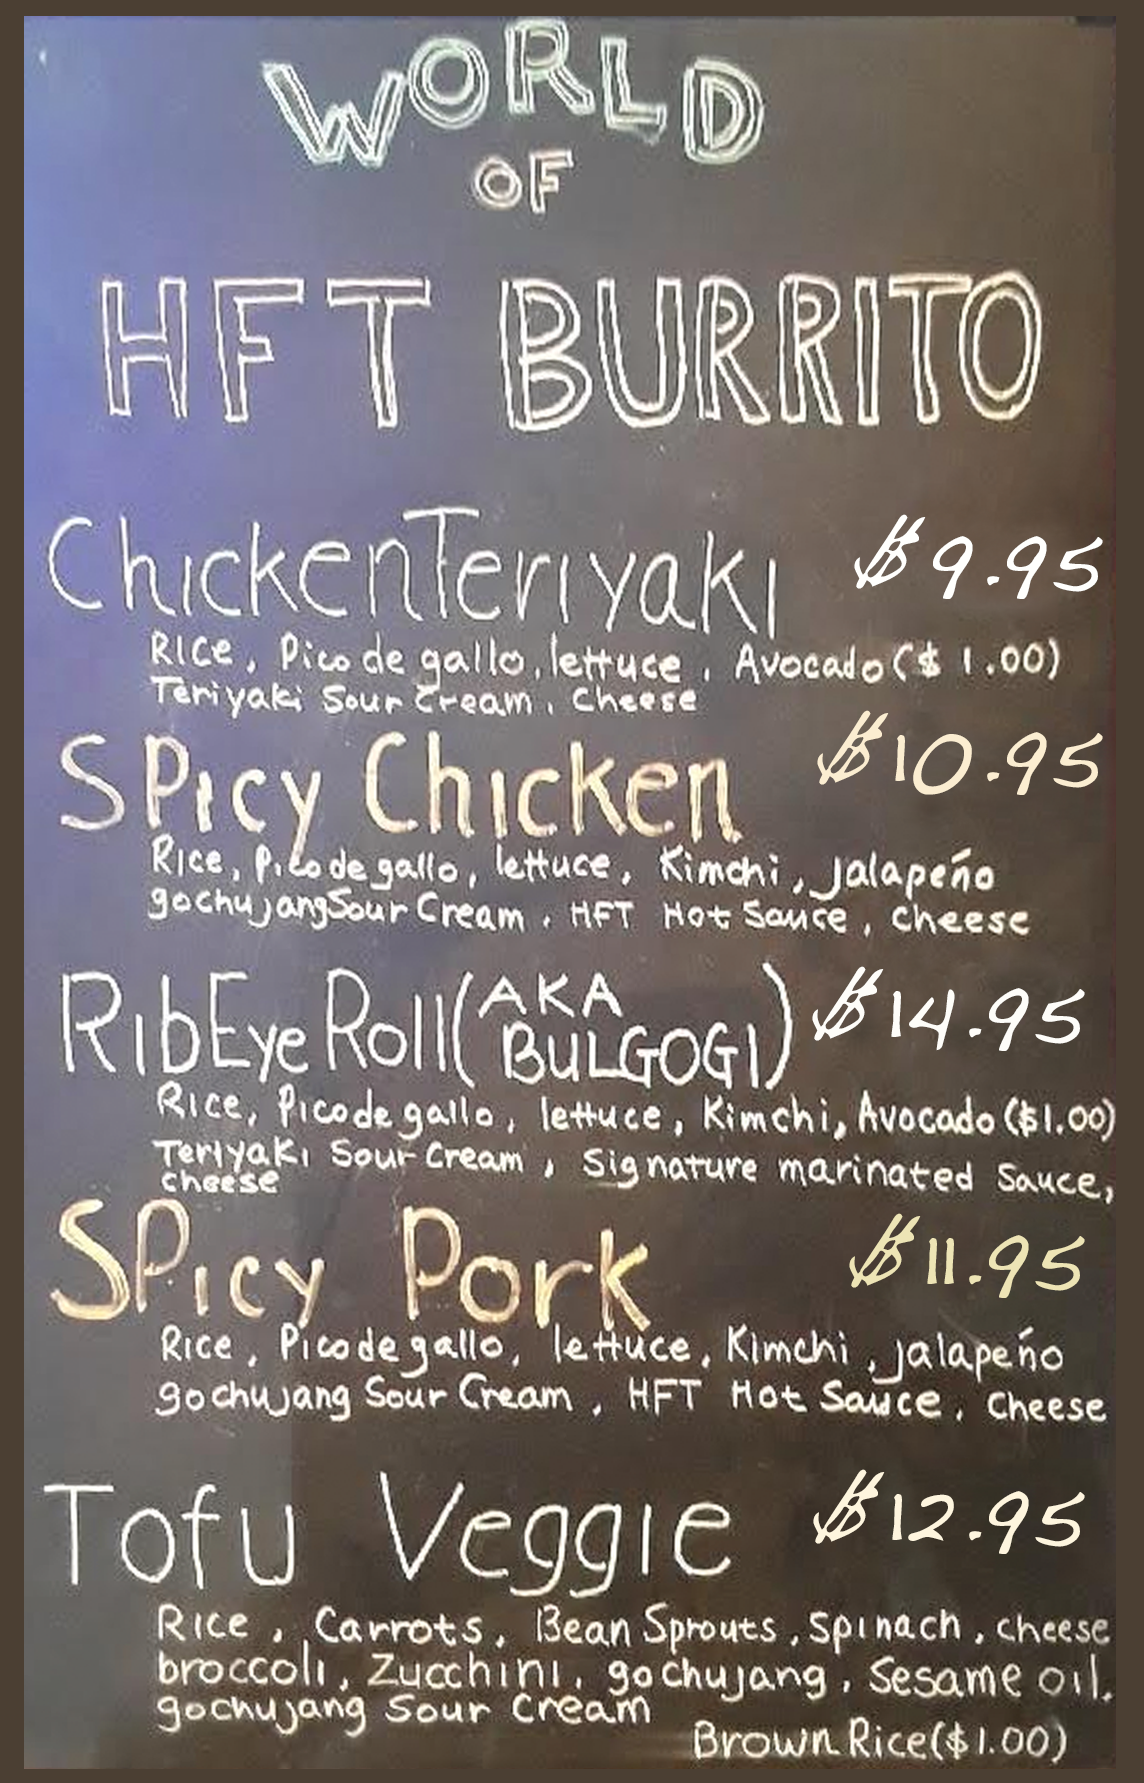 WORLD
OF
HFT BURRITO
Chicken Teriyaki $9.95
Rice, Pico de gallo, lettuce, Avocado ($1.00)
Teriyaki Sour Cream, Cheese
Spicy Chicken $10.95
Rice, Pico de gallo, lettuce, Kimchi, jalapeño
gochujang Sour Cream, HFT Hot Sauce, cheese
RibEye Roll (AKA BULGOGI) $14.95
Rice, Pico de gallo, lettuce, Kimchi, Avocado ($1.00)
Teriyaki Sour Cream, Signature marinated Sauce,
cheese
Spicy Pork $11.95
Rice, Pico de gallo, lettuce, Kimchi, jalapeño
gochujang Sour Cream, HFT Hot Sauce, Cheese
Tofu Veggie $12.95
Rice, Carrots, Bean Sprouts, Spinach, cheese
broccoli, Zucchini, gochujang, Sesame oil,
gochujang Sour Cream
Brown Rice ($1.00)